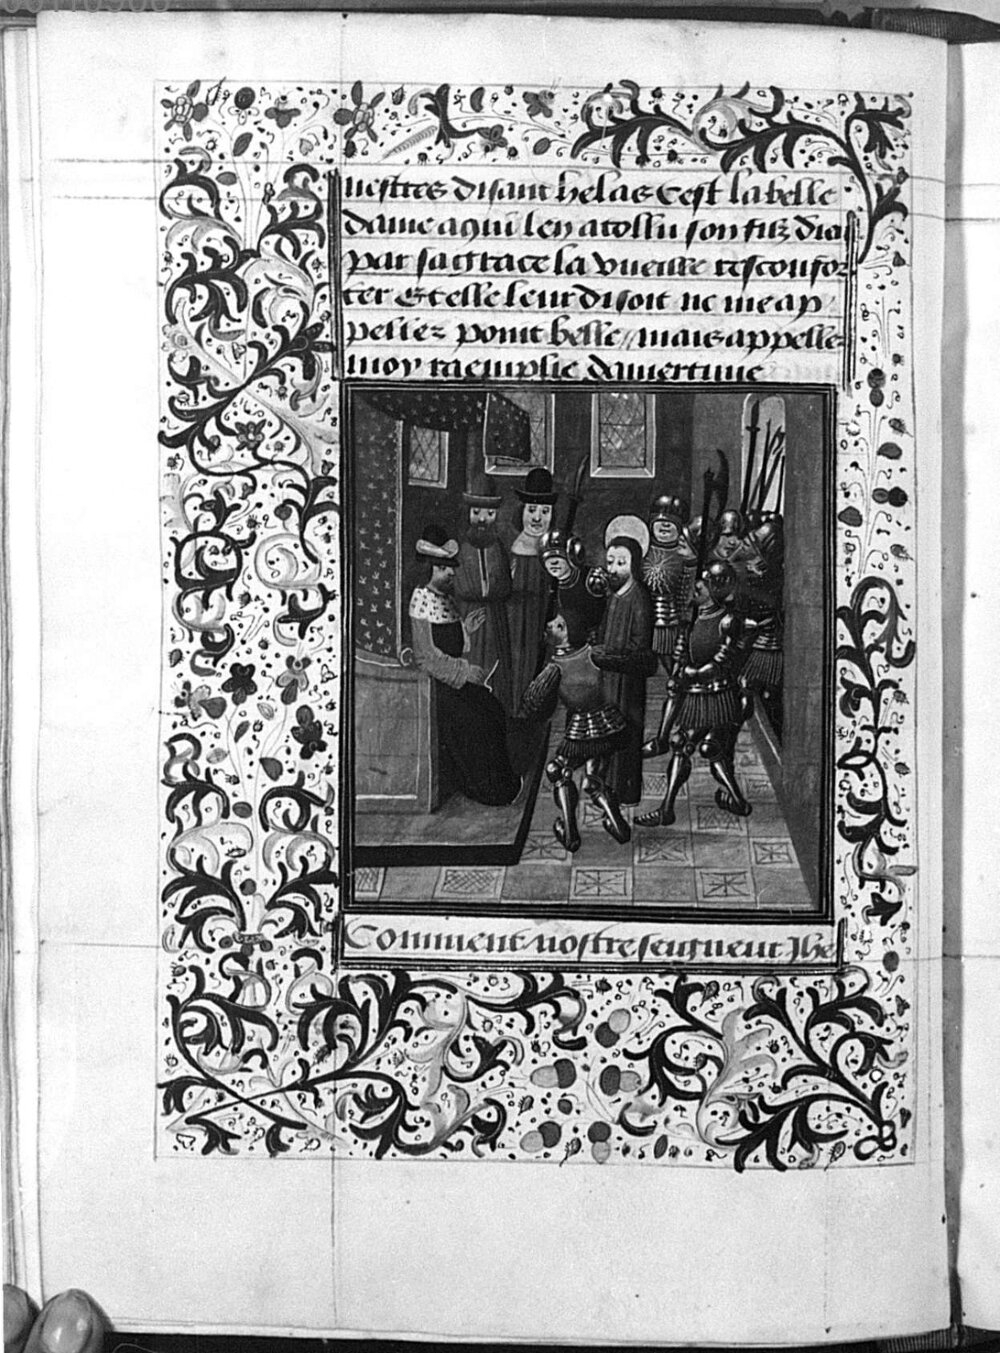 nestres disant helas Cest la belle
dame a qui len a tollu son filz dieu
par sa grace la vueille resconfor
ter Et elle leur disoit ne me ap
pellez point belle // mais appelle
moy raemplie damertume
Comment nostre seigneur Jhe